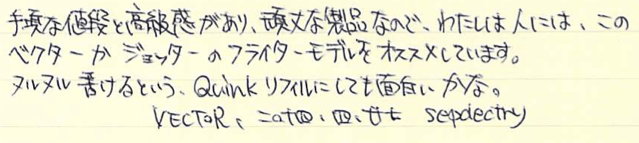 手頃な値段と高級感があり、頑丈な製品なので、わたしは人には、この
ベクターか ジョッターのフライターモデルをオススメしています。
ヌルヌル書けるという、Quink リフィルにしても面白いかな。
VECTOR、二〇十四、四、廿七 sepdectry